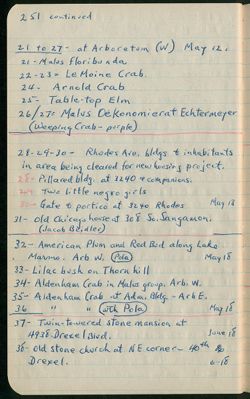 251 continued
21 to 27 - at Arboretum (W) May 12.
21 - Malus floribunda
22-23 - Le Moine Crab.
24 - Arnold Crab
25 - Table-top Elm
26/27: Malus Oekonomierat Echtermeyer
(Weeping Crab - purple)
28-29-30 - Rhodes Ave. bldgs. & inhabitants
in area being cleared for new housing project.
28 - Pillared bldg. at 3240 & companions.
29 - Two little negro girls
30 - Gate & portico at 3240 Rhodes May 18
31 - Old Chicago house at 308 So. Sangamon.
(Jacob Beidler)
32 - American Plum and Red Bud along Lake
Marmo. Arb W. (Pola) May 18
33 - Lilac bush on Thornhill
34 - Aldenham Crab in Malus group. Arb. W.
35 - Aldenham Crab at Adm. Bldg. - Arb E.
36 " " (with Pola) May 18
37 - Twin-towered stone mansion at
4938 Drexel Blvd. June 18
38 - old stone church at NE corner - 40th &
Drexel. 6-18